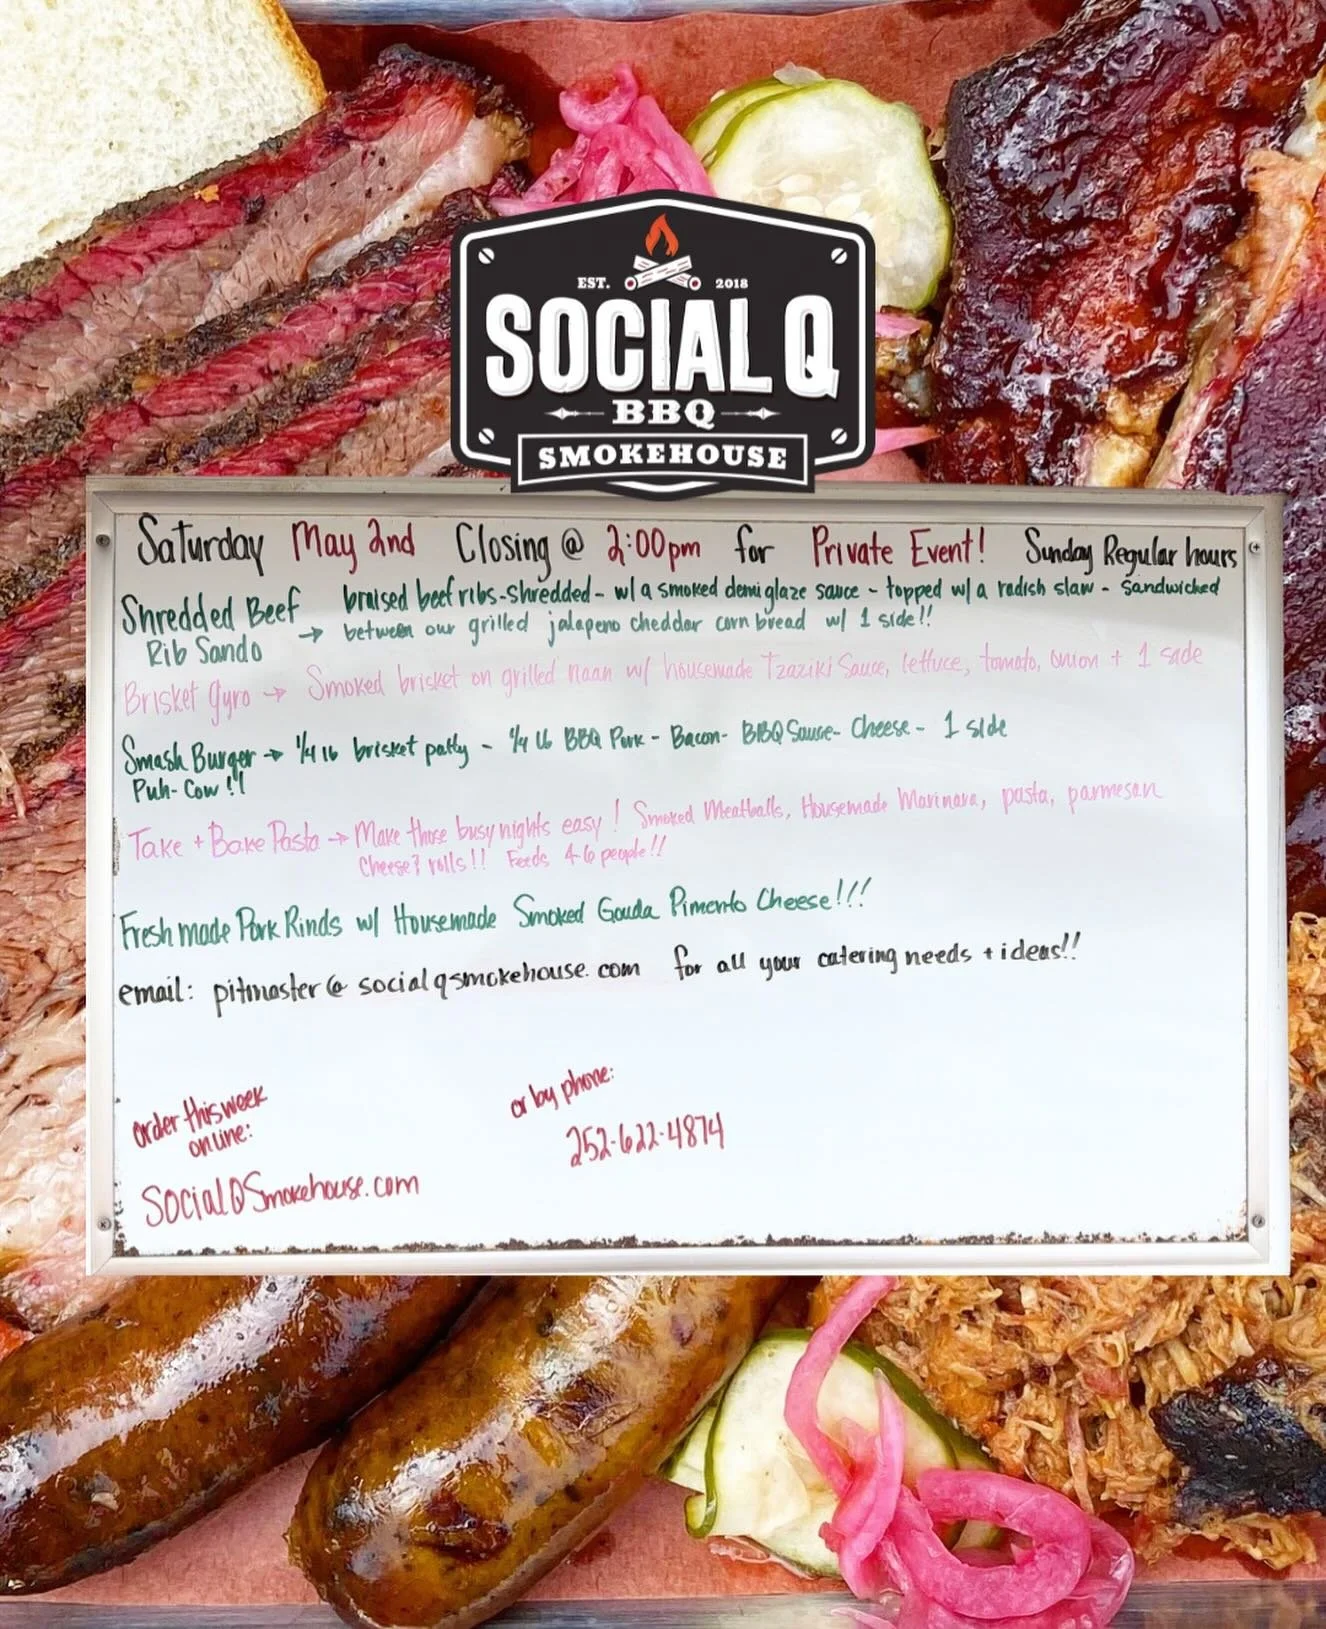 EST. 2018
SOCIAL Q
BBQ
SMOKEHOUSE
Saturday May 2nd Closing @ 2:00pm for Private Event! Sunday Regular hours
Shredded Beef Rib Sando → braised beef ribs-shredded - w/ a smoked demiglaze sauce - topped w/ a radish slaw - sandwiched
between our grilled jalapeno cheddar corn bread w/ 1 side!!
Brisket Gyro → Smoked brisket on grilled naan w/ housemade Tzaziki Sauce, lettuce, tomato, onion + 1 side
Smash Burger → 1/4 lb brisket patty - 1/4 lb BBQ Pork - Bacon - BBQ Sauce - Cheese - 1 side
Puh-Cow!!
Take + Bake Pasta → Make those busy nights easy! Smoked Meatballs, Housemade Marinara, pasta, parmesan
Cheese & rolls!! Feeds 4-6 people!!
Fresh made Pork Rinds w/ Housemade Smoked Gouda Pimento Cheese!!!
email: pitmaster@socialqsmokehouse.com for all your catering needs + ideas!!
order this week
online:
SocialQSmokehouse.com
or by phone:
252-622-4874